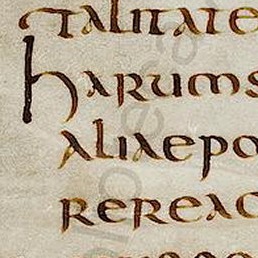 talitate
harums
aliaepo
rereac